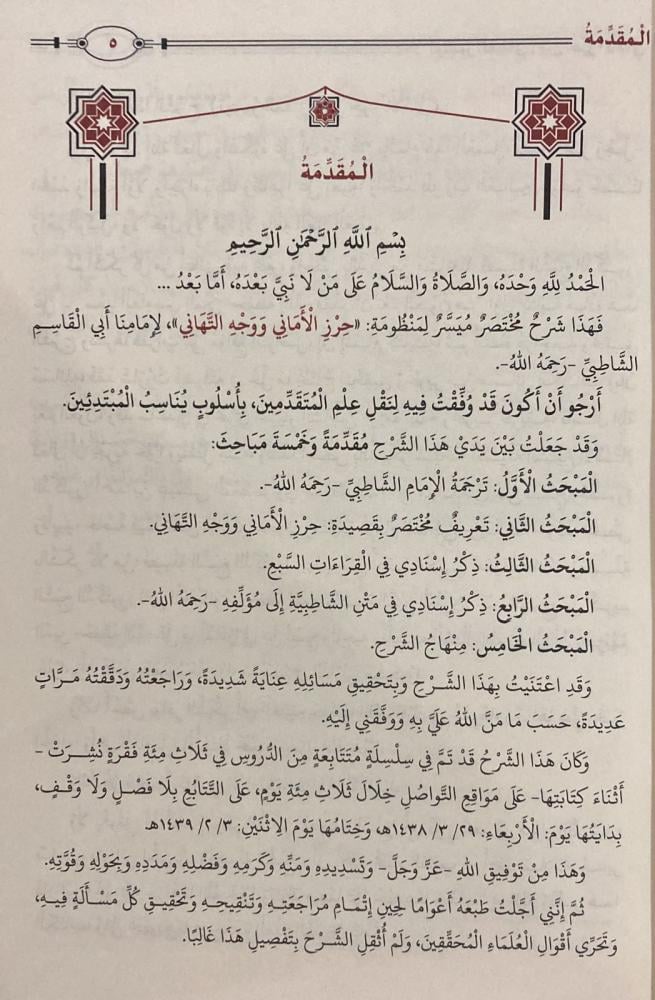 الْمُقَدِّمَةُ
٥
الْمُقَدِّمَةُ
بِسْمِ ٱللَّهِ ٱلرَّحْمَٰنِ ٱلرَّحِيمِ
الْحَمْدُ لِلَّهِ وَحْدَهُ، وَالصَّلَاةُ وَالسَّلَامُ عَلَى مَنْ لَا نَبِيَّ بَعْدَهُ، أَمَّا بَعْدُ ...
فَهَذَا شَرْحٌ مُخْتَصَرٌ مُيَسَّرٌ لِمَنْظُومَةِ: «حِرْزِ الْأَمَانِي وَوَجْهِ التَّهَانِي»، لِإِمَامِنَا أَبِي الْقَاسِمِ
الشَّاطِبِيِّ -رَحِمَهُ اللهُ-.
أَرْجُو أَنْ أَكُونَ قَدْ وُفِّقْتُ فِيهِ لِنَقْلِ عِلْمِ الْمُتَقَدِّمِينَ، بِأُسْلُوبٍ يُنَاسِبُ الْمُبْتَدِئِينَ.
وَقَدْ جَعَلْتُ بَيْنَ يَدَيْ هَذَا الشَّرْحِ مُقَدِّمَةً وَخَمْسَةَ مَبَاحِثَ:
الْمَبْحَثُ الْأَوَّلُ: تَرْجَمَةُ الْإِمَامِ الشَّاطِبِيِّ -رَحِمَهُ اللهُ-.
الْمَبْحَثُ الثَّانِي: تَعْرِيفٌ مُخْتَصَرٌ بِقَصِيدَةِ: حِرْزِ الْأَمَانِي وَوَجْهِ التَّهَانِي.
الْمَبْحَثُ الثَّالِثُ: ذِكْرُ إِسْنَادِي فِي الْقِرَاءَاتِ السَّبْعِ.
الْمَبْحَثُ الرَّابِعُ: ذِكْرُ إِسْنَادِي فِي مَتْنِ الشَّاطِبِيَّةِ إِلَى مُؤَلِّفِهِ -رَحِمَهُ اللهُ-.
الْمَبْحَثُ الْخَامِسُ: مِنْهَاجُ الشَّرْحِ.
وَقَدِ اعْتَنَيْتُ بِهَذَا الشَّرْحِ وَبِتَحْقِيقِ مَسَائِلِهِ عِنَايَةً شَدِيدَةً، وَرَاجَعْتُهُ وَدَقَّقْتُهُ مَرَّاتٍ
عَدِيدَةً، حَسَبَ مَا مَنَّ اللهُ عَلَيَّ بِهِ وَوَفَّقَنِي إِلَيْهِ.
وَكَانَ هَذَا الشَّرْحُ قَدْ تَمَّ فِي سِلْسِلَةٍ مُتَتَابِعَةٍ مِنَ الدُّرُوسِ فِي ثَلَاثِ مِئَةِ فَقْرَةٍ نُشِرَتْ -
أَثْنَاءَ كِتَابَتِهَا- عَلَى مَوَاقِعِ التَّوَاصُلِ خِلَالَ ثَلَاثِ مِئَةِ يَوْمٍ، عَلَى التَّتَابُعِ بِلَا فَصْلٍ وَلَا وَقْفٍ،
بِدَايَتُهَا يَوْمَ: الْأَرْبِعَاءِ: ٢٩/ ٣/ ١٤٣٨هـ، وَخِتَامُهَا يَوْمَ الِاثْنَيْنِ: ٣/ ٢/ ١٤٣٩هـ.
وَهَذَا مِنْ تَوْفِيقِ اللهِ -عَزَّ وَجَلَّ- وَتَسْدِيدِهِ وَمَنِّهِ وَكَرَمِهِ وَفَضْلِهِ وَمَدَدِهِ وَبِحَوْلِهِ وَقُوَّتِهِ.
ثُمَّ إِنَّنِي أَجَّلْتُ طَبْعَهُ أَعْوَامًا لِحِينِ إِتْمَامِ مُرَاجَعَتِهِ وَتَنْقِيحِهِ وَتَحْقِيقِ كُلِّ مَسْأَلَةٍ فِيهِ،
وَتَحَرِّي أَقْوَالِ الْعُلَمَاءِ الْمُحَقِّقِينَ، وَلَمْ أُثْقِلِ الشَّرْحَ بِتَفْصِيلِ هَذَا غَالِبًا.